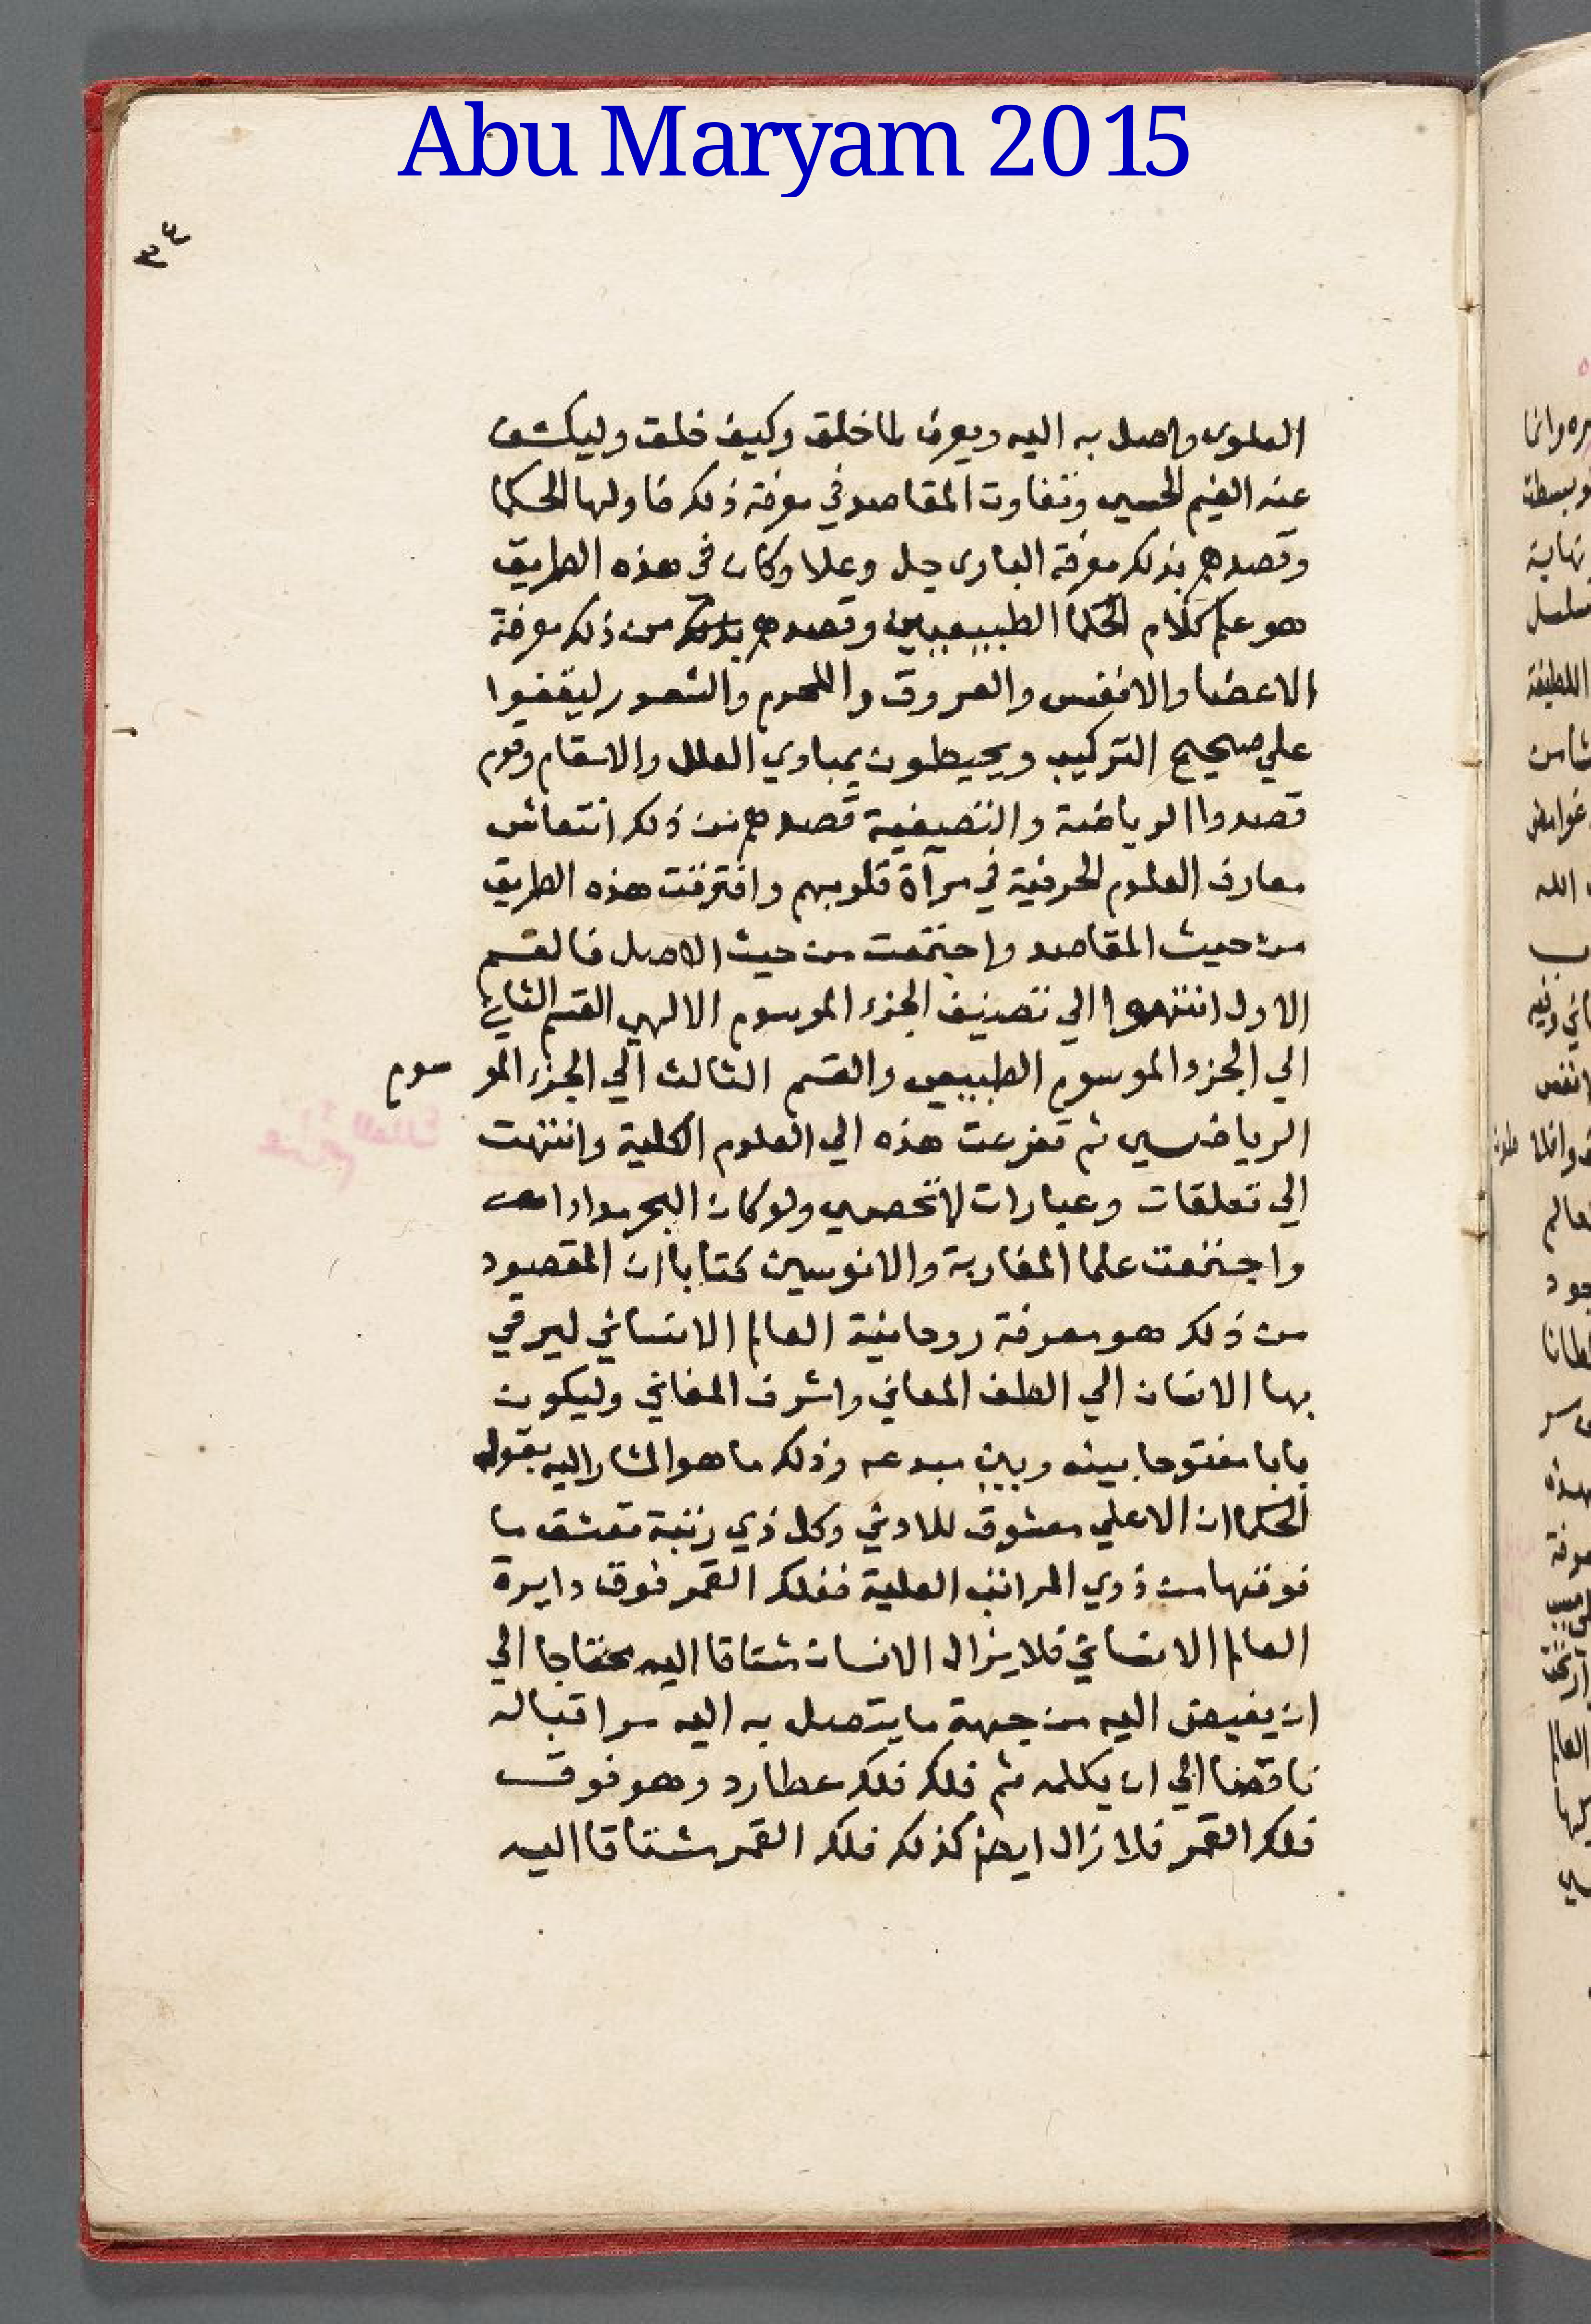 Abu Maryam 2015
٣٤
العلوى واصل به اليه ويعرف لما خلق وكيف خلق وليكشف
عنه الغيم الحسى وتفاوت المقاصد في معرفة ذلك فاولها الحكما
وقصدهم بذلك معرفة البارى جل وعلا وكان في هذه الطريق
هو علم كلام الحكما الطبيعيين وقصدهم من ذلك معرفة
الاعضا والانفس والعروق واللحوم والشعور ليقفوا
علي صحيح التركيب ويحيطون بمبادي العلل والاسقام وقوم
قصدوا الرياضة والتصيفية قصدهم من ذلك انتعاش
معارف العلوم الحرفية في مرآة قلوبهم وافترقت هذه الطريق
من حيث المقاصد واجتمعت من حيث الاصل فالقسم
الاول انتهوا الي تصنيف الجزء الموسوم الالهي القسم الثاني
الي الجزء الموسوم الطبيعي والقسم الثالث الي الجزء المو سوم
الرياضي ثم تفرعت هذه الي العلوم الكلية وانتهت
الي تعلقات وعبارات لا تحصى ولو كان البحر مدادا
واجتمعت علما المغاربة والانوسين كتابا ان المقصود
من ذلك هو معرفة روحانية العالم الانساني ليرقي
بها الانسان الي الطف المعاني واشرف المغاني وليكون
بابا مفتوحا بينه وبين مبدعه وذلك ما هو المشار اليه بقول
الحكما ان الاعلي معشوق للادني وكل ذي رتبة تعشق ما
فوقها من ذوي المراتب العلية ففلك القمر فوق دايرة
العالم الانساني فلا يزال الانسان شتاقا اليه محتاجا الي
ان يفيض اليه من جهة ما يتصل به اليه سر اقباله
ناقصا الي ان يكلمه ثم فلك فلك عطارد وهو فوق
فلك القمر فلا زال ايضا كذلك فلك القمر شتاقا اليه